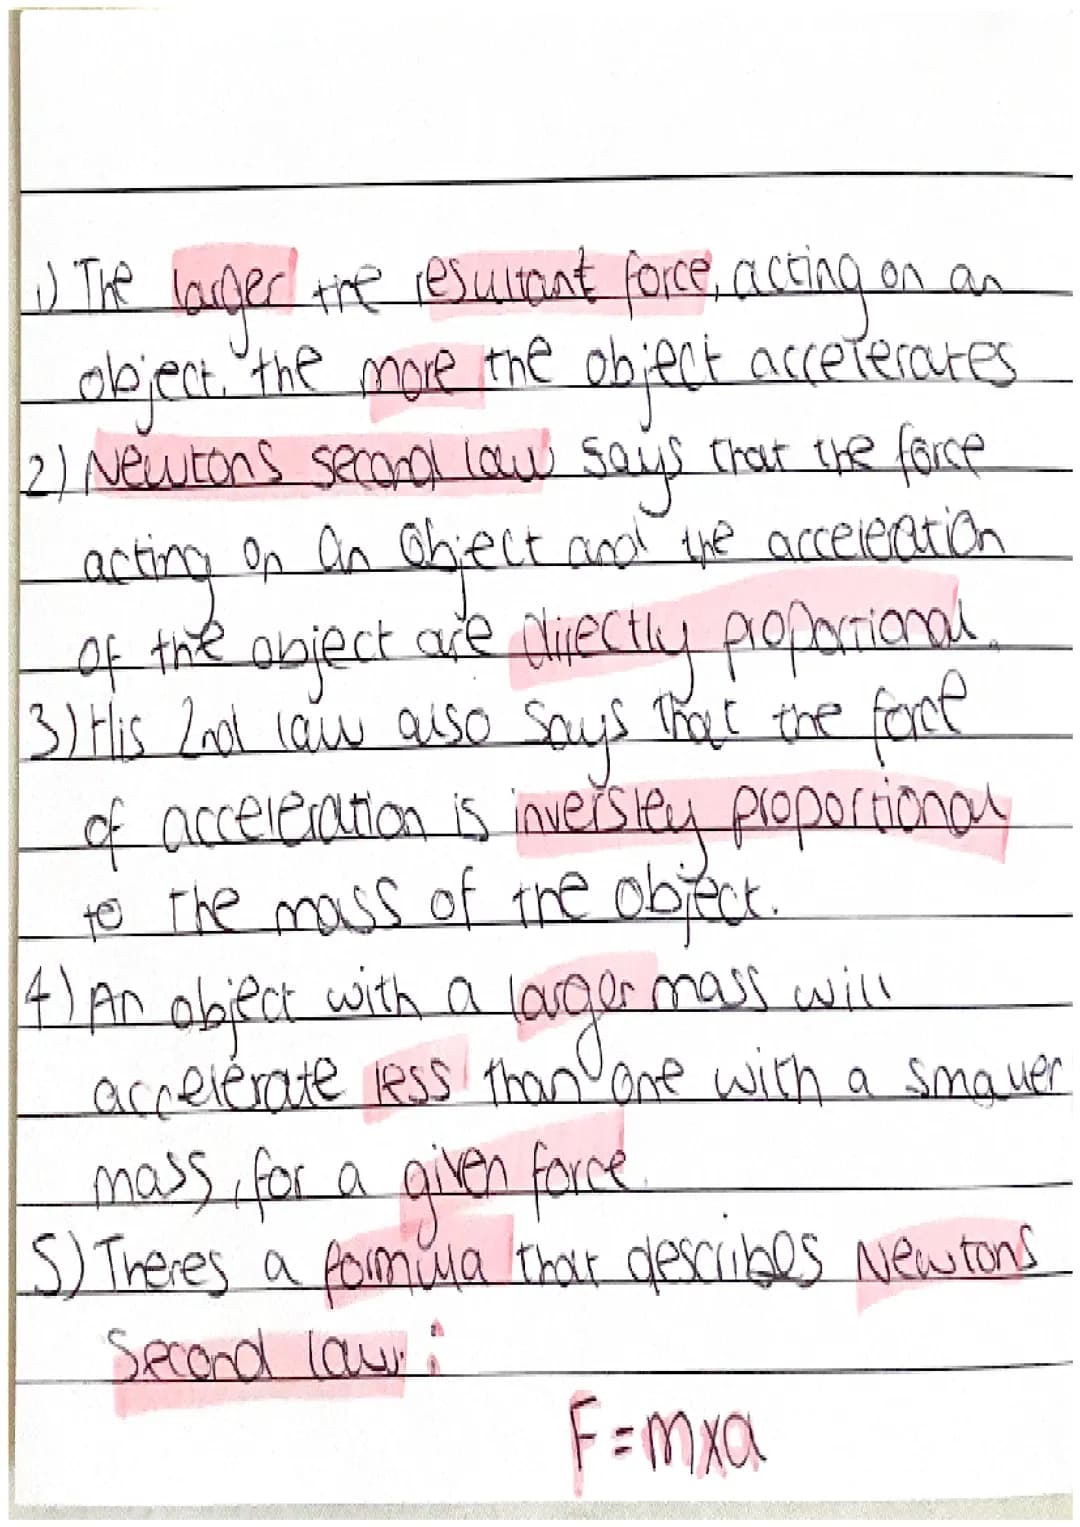 1) The larger the resultant force, acting on an
object, the more the object accelerates
2) Newtons second law says that the force
acting on an object and the acceleration
of the object are directly proportional.
3) His 2nd law also says that the force
of acceleration is inversley proportional
to the mass of the object.
4) An object with a larger mass will
accelerate less than one with a smaller
mass, for a given force.
5) Theres a formula that describes Newtons
Second law:
F = mxa